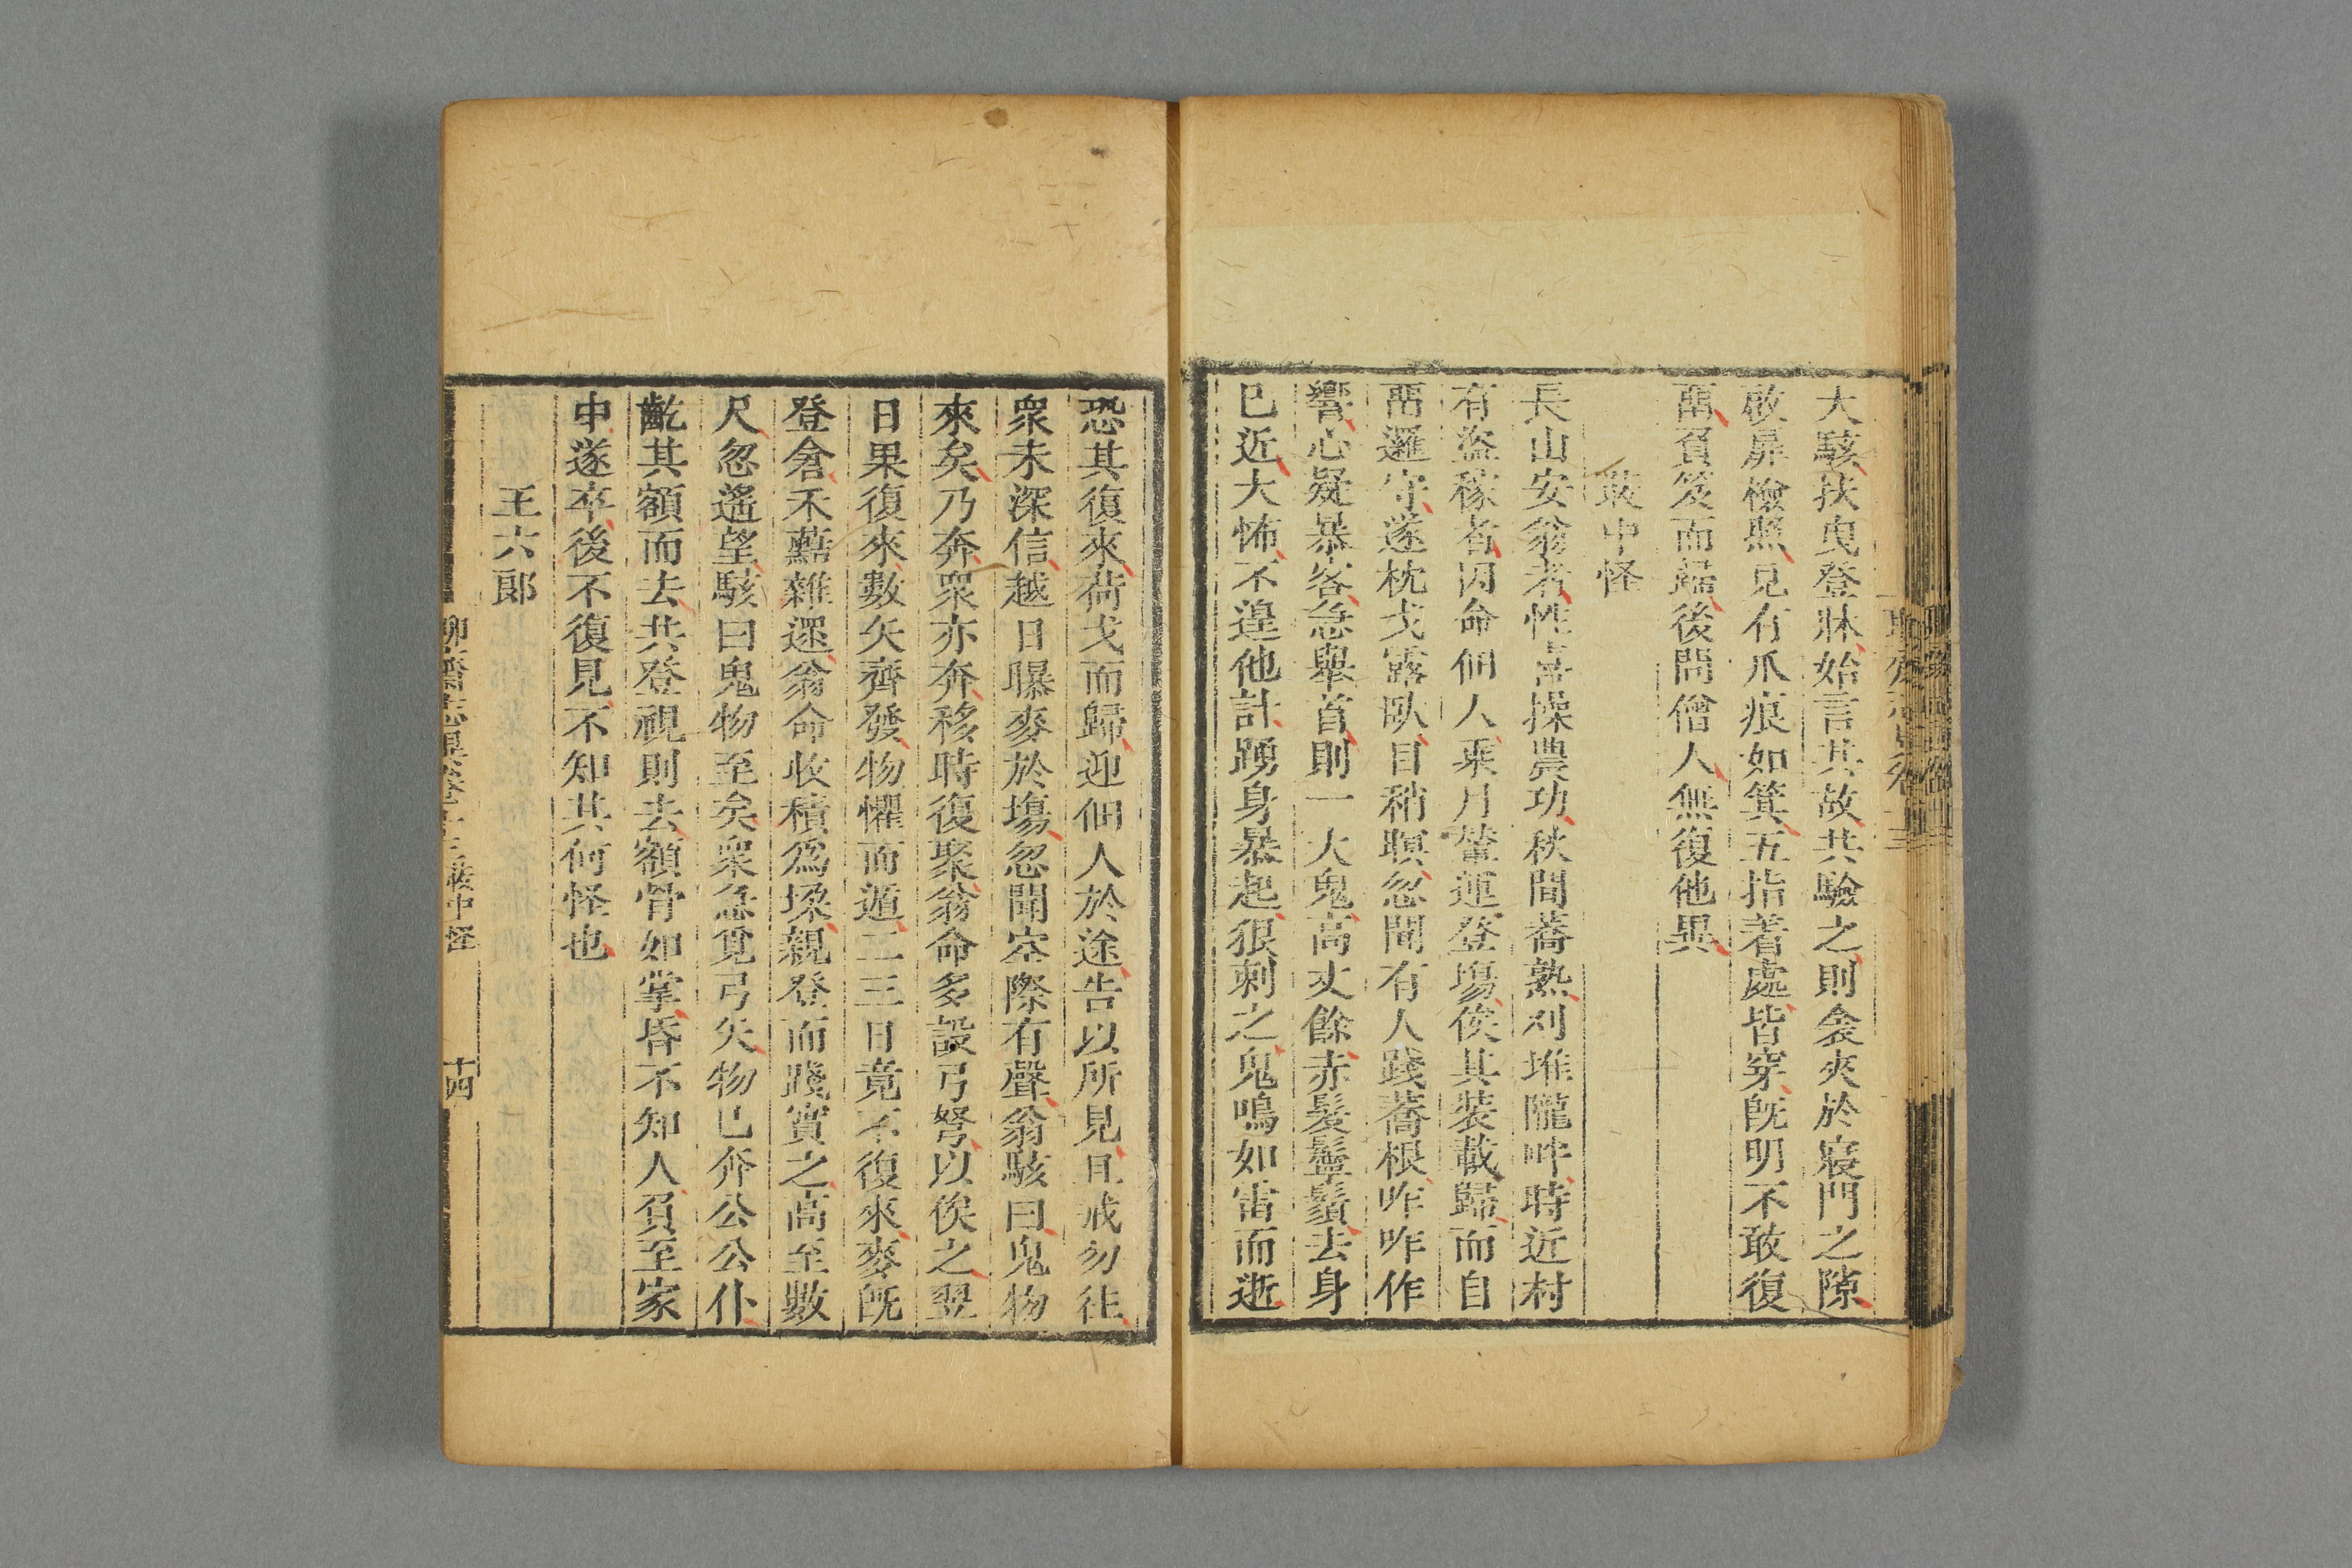 大駭扶曳登牀始言其故共驗之則衾夾於寢門之隙
啟扉檢照見有爪痕如箕五指著處皆穿旣明不敢復
畱負笈而歸後問僧人無復他異
荍中怪
長山安翁者性喜操農功秋間蕎熟刈堆隴畔時近村
有盜稼者因命佃人乘月輦運登塲俟其裝載歸而自
畱邏守遂枕戈露臥目稍瞑忽聞有人踐蕎根咋咋作
響心疑暴客急舉首則一大鬼高丈餘赤髮鬡鬚去身
已近大怖不遑他計踴身暴起狠刺之鬼鳴如雷而逝
恐其復來荷戈而歸迎佃人於途告以所見且戒勿往
衆未深信越日曝麥於塲忽聞空際有聲翁駭曰鬼物
來矣乃奔衆亦奔移時復聚翁命多設弓弩以俟之翌
日果復來數矢齊發物懼而遁二三日竟不復來麥旣
登倉禾𧂐雜遝翁命收積爲垛親登而踐實之高至數
尺忽遙望駭曰鬼物至矣衆急覓弓矢物已奔公公仆
齕其額而去共登視則去額骨如掌昏不知人負至家
中遂卒後不復見不知其何怪也
王六郞
聊齋志異卷十三 荍中怪 十四